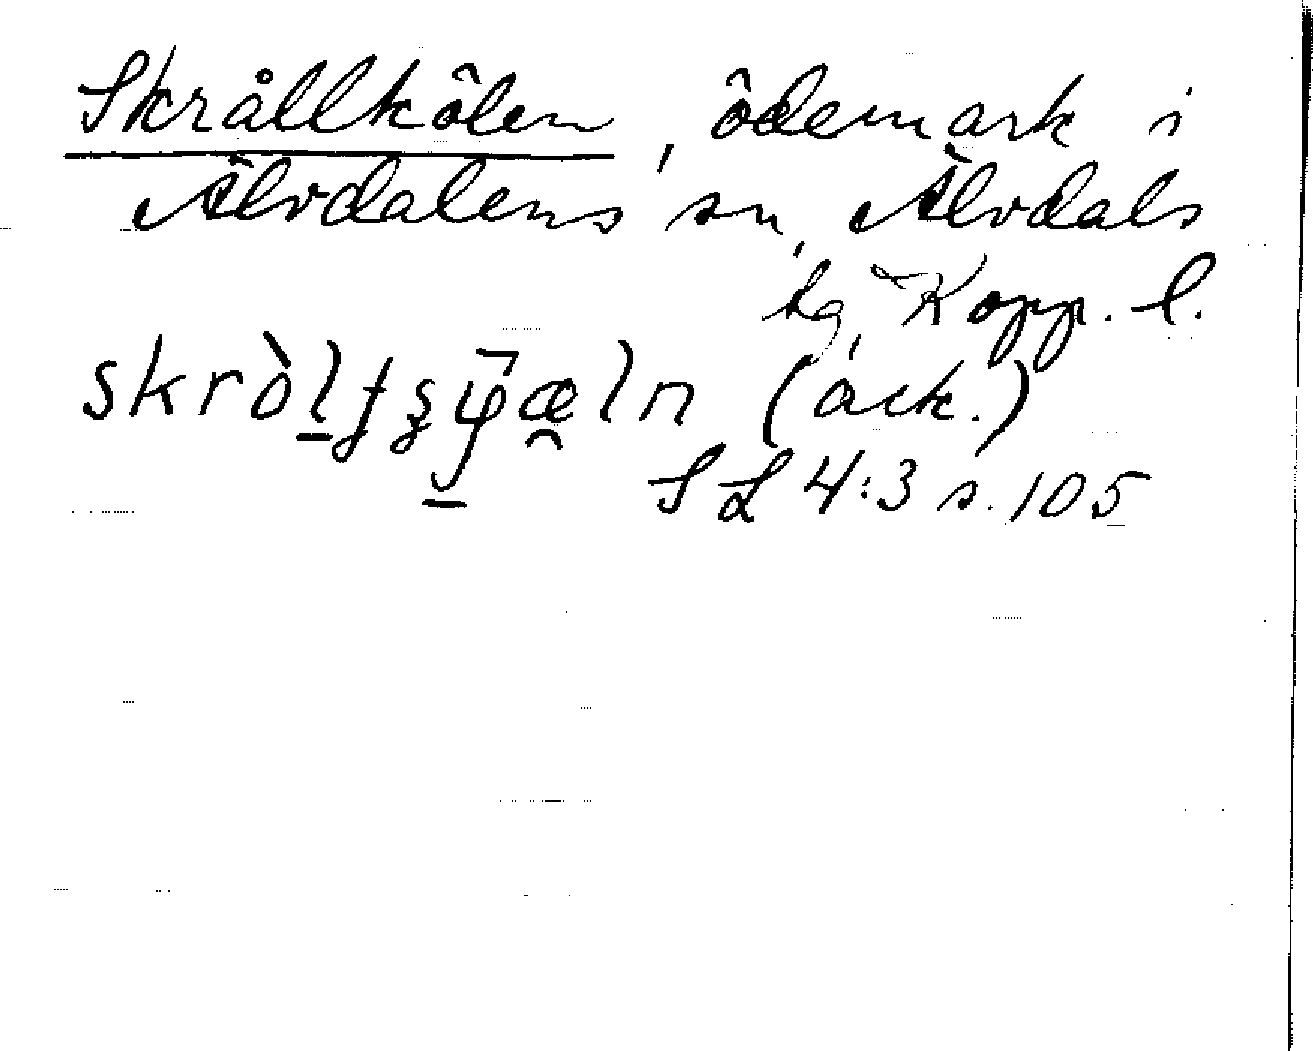 Skrållkölen, ödemark i
Älvdalens sn, Älvdals
tg, Kopp. l.
(ack.)
SL 4:3 s. 105